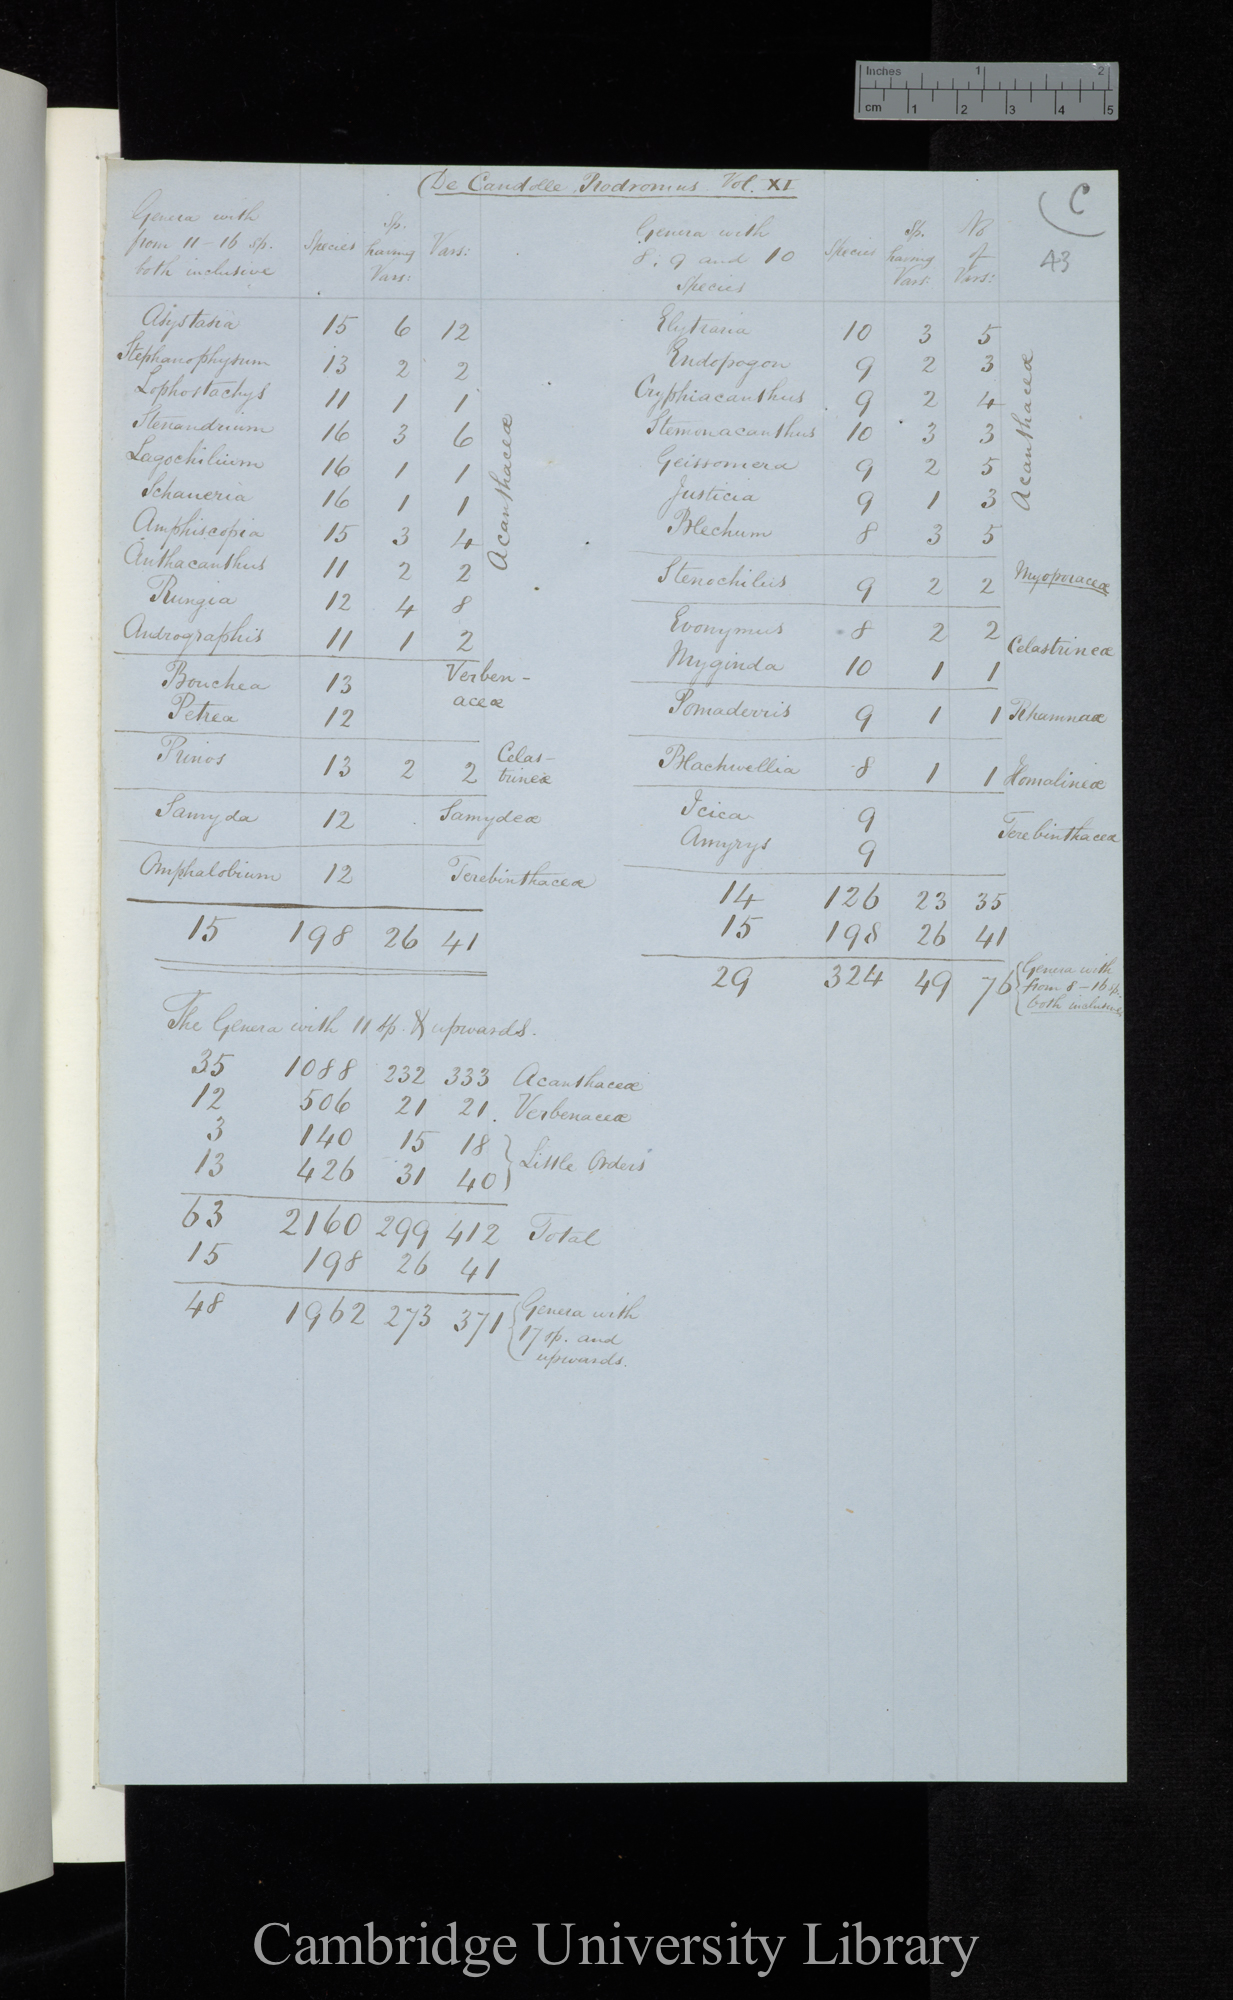 Inches 1 2
cm 1 2 3 4 5
De Candolle Prodromus. Vol. XI
C
43
Genera with from 11–16 sp. both inclusive | Species | Sp. having Vars: | Vars:
Asystasia 15 6 12
Stephanophysum 13 2 2
Lophostachys 11 1 1
Stenandrium 16 3 6
Lagochilium 16 1 1
Schaueria 16 1 1
Amphiscopia 15 3 4
Anthacanthus 11 2 2
Rungia 12 4 8
Andrographis 11 1 2
Acanthaceæ
Bouchea 13
Petrea 12
Verben-
aceæ
Prinos 13 2 2 Celas-
trineæ
Samyda 12 Samydeæ
Omphalobium 12 Terebinthaceæ
15 198 26 41
The Genera with 11 sp. & upwards.
35 1088 232 333 Acanthaceæ
12 506 21 21. Verbenaceæ
3 140 15 18
13 426 31 40
Little Orders
63 2160 299 412 Total
15 198 26 41
48 1962 273 371 Genera with
17 sp. and
upwards.
Genera with 8; 9 and 10 Species | Species | Sp. having Vars: | No of Vars:
Elytraria 10 3 5
Endopogon 9 2 3
Cryphiacanthus 9 2 4
Stemonacanthus 10 3 3
Geissomera 9 2 5
Justicia 9 1 3
Blechum 8 3 5
Acanthaceæ
Stenochilus 9 2 2 Myoporaceæ
Evonymus 8 2 2
Myginda 10 1 1
Celastrineæ
Pomaderris 9 1 1 Rhamnaæ
Blachwellia 8 1 1 Homalineæ
Icica 9
Amyrys 9
Terebinthaceæ
14 126 23 35
15 198 26 41
29 324 49 76 Genera with
from 8–16 sp.
both inclusive
Cambridge University Library